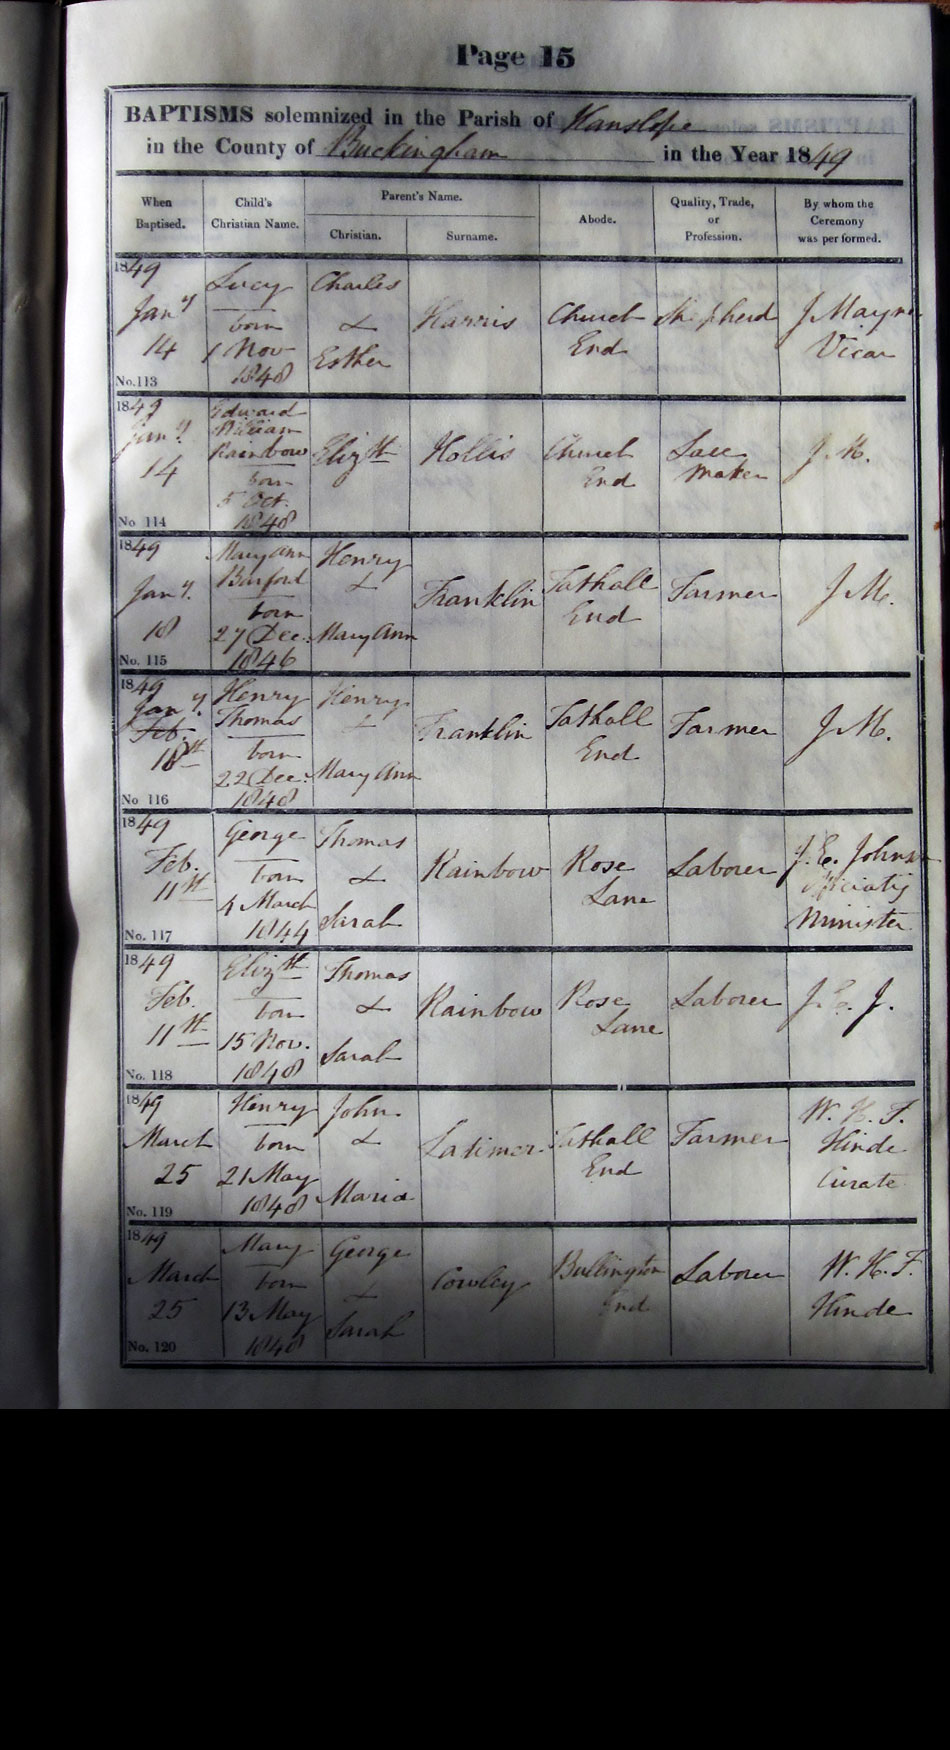 Page 15
BAPTISMS solemnized in the Parish of Hanslope
in the County of Buckingham in the Year 1849
When Baptised.
Child's Christian Name.
Parent's Name.
Christian.
Surname.
Abode.
Quality, Trade, or Profession.
By whom the Ceremony was performed.
1849
Jany
14
No. 113
Lucy
born
1 Nov
1848
Charles
&
Esther
Harris
Church
End
Shepherd
J Mayne
Vicar
1849
Jany.
14
No 114
Edward
William
Rainbow
born
5 Oct.
1848
Elizth
Hollis
Church
End
Lace
Maker
J. M.
1849
Jany.
18
No. 115
Mary Ann
Barford
born
27 Dec.
1846
Henry
&
Mary Ann
Franklin
Tathall
End
Farmer
J M.
1849
Jany.
Feb.
18th
No 116
Henry
Thomas
born
22 Dec.
1848
Henry
&
Mary Ann
Franklin
Tathall
End
Farmer
J M.
1849
Feb.
11th
No. 117
George
born
4 March
1844
Thomas
&
Sarah
Rainbow
Rose
Lane
Laborer
J. E. Johnson
Officiatg
Minister
1849
Feb.
11th
No. 118
Elizth
born
15 Nov.
1848
Thomas
&
Sarah
Rainbow
Rose
Lane
Laborer
J. E. J.
1849
March
25
No. 119
Henry
born
21 May
1848
John
&
Maria
Latimer
Tathall
End
Farmer
W. H. F.
Hinde
Curate
1849
March
25
No. 120
Mary
born
13 May
1848
George
&
Sarah
Cowley
Bullington
End
Laborer
W. H. F.
Hinde